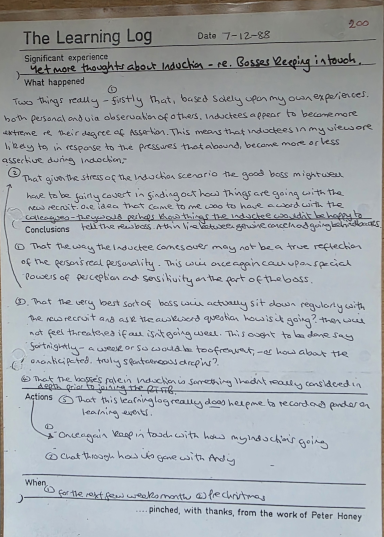 200
The Learning Log Date 7-12-88
Significant experience
Yet more thoughts about Induction - re. Bosses keeping in touch.
What happened
①
Two things really - firstly that, based solely upon my own experiences.
both personal and via observation of others, Inductees appear to become more
extreme re their degree of Assertion. This means that inductees in my view are
likely to, in response to the pressures that abound, become more or less
assertive during Induction.
② That given the stress of the Induction scenario the good boss might well
have to be fairly covert in finding out how things are going with the
new recruit. One idea that came to me was to have a word with the
colleagues - they would perhaps know things the inductee wouldn't be happy to
tell the new boss. A thin line between genuine concern and going behind backs
Conclusions
① That the way the Inductee comes over may not be a true reflection
of the person's real personality. This will once again call upon special
powers of perception and sensitivity on the part of the boss.
That the very best sort of boss will actually sit down regularly with
the new recruit and ask the awkward question how is it going? - then will
not feel threatened if all isn't going well. This ought to be done say
fortnightly - a week or so would be too frequent, - or how about the
unanticipated, truly spontaneous drop ins?
That the bosses role in Induction is something I hadn't really considered in
depth prior to joining the
Actions ⑤ That this learning log really does help me to record and ponder on
learning events.
① Once again keep in touch with how my Induction's going
② Chat through how it's gone with Andy
When
① for the next few weeks/months ② Pre christmas
....pinched, with thanks, from the work of Peter Honey